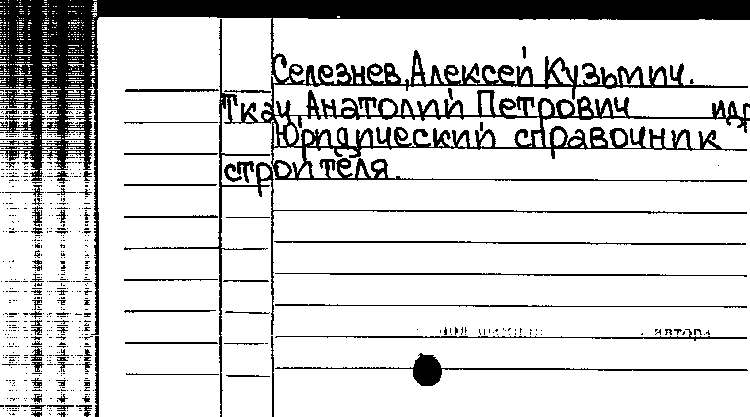 Селезнев, Алексей Кузьмич.
Ткач, Анатолий Петрович и др
Юридический справочник
строителя.
автора